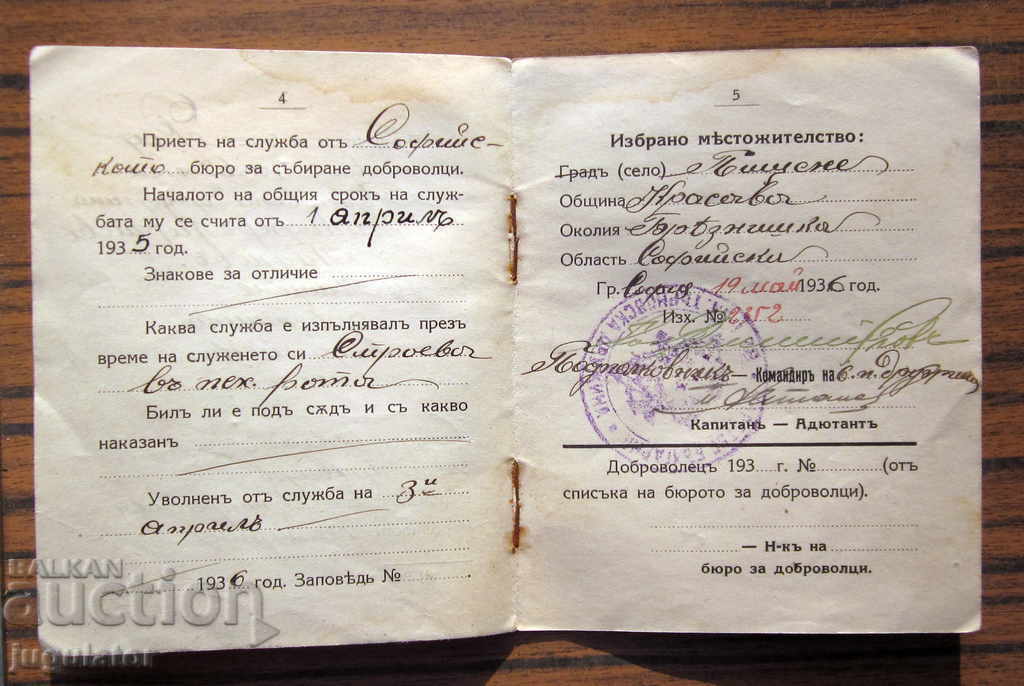 4
Приетъ на служба отъ Софийс-
кото бюро за събиране доброволци.
Началото на общия срокъ на служ-
бата му се счита отъ 1 априлъ
1935 год.
Знакове за отличие
Каква служба е изпълнявалъ презъ
време на служенето си Строева
въ пех. рота
Билъ ли е подъ сѫдъ и съ какво
наказанъ
Уволненъ отъ служба на 3и
априлъ
1936 год. Заповѣдь №
5
Избрано мѣстожителство:
Градъ (село)
Община Красава
Околия Брѣзнишка
Область Софийски
Гр. София 19 май 1936 год.
Изх. № 2252
Подполковникъ — Командиръ на 6. п. дружина
Капитанъ — Адютантъ
Доброволецъ 193 г. № (отъ
списъка на бюрото за доброволци).
— Н-къ на
бюро за доброволци.
BALKAN
auction
jugulator